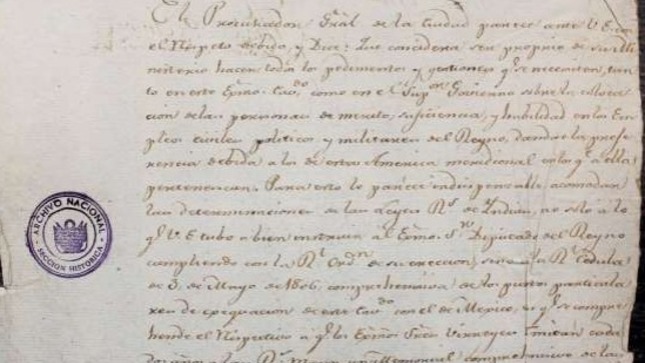 El Procurador Gral de la Ciudad parece ante V. E. con
el Respeto debido, y Dice: Que considera ser propio de su Mi
nisterio hacer todos los pedimentos y gestiones q.e se necesiten, tan
to en este Exmo. Cav.do como en el Sup.or Govierno sobre la coloca
cion de las personas de merito, suficiencia, y habilidad en los Em
pleos civiles politicos y militares del Reyno, dandose la prefe
rencia debida a los de esta America meridional en los q.e a ella
pertenescan. Para esto le parece indispensable acomodar
las determinaciones de las Leyes R.s de Indias, no solo a lo
q.e V. E. tubo a bien instruir al Exmo. S.or Diputado del Reyno
cumpliendo con la R.l Ord.n de su eleccion, sino a la R.l Cedula
de 3 de Mayo de 1806 comprehensiva de los puntos particula
res de igualacion de este Cav.do con el de Mexico, en q.e se compre
hende el Respectivo a q.e los Exmos. Sres. Virreyes remitan cada
dos años a las R.s Manos comprehensivo de las
ARCHIVO NACIONAL
SECCION HISTORICA